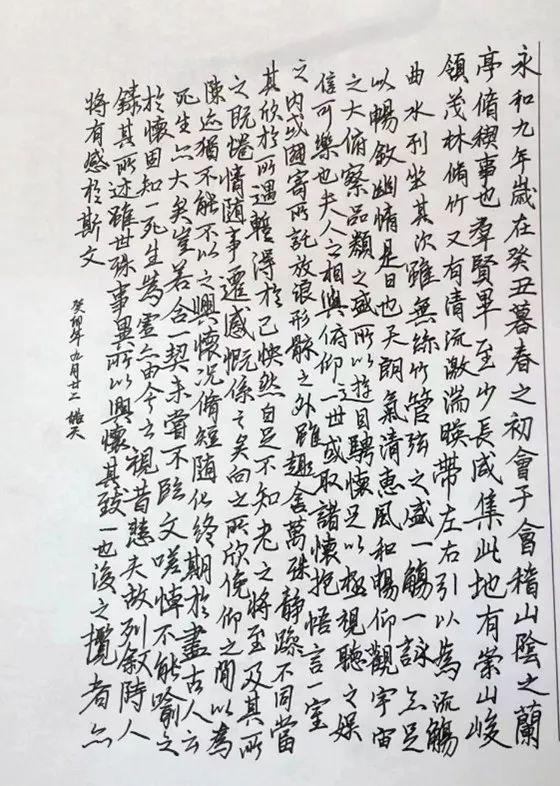 永和九年歲在癸丑暮春之初會于會稽山陰之蘭
亭脩稧事也羣賢畢至少長咸集此地有崇山峻
領茂林脩竹又有清流激湍暎帶左右引以為流觴
曲水列坐其次雖無絲竹管弦之盛一觴一詠亦足
以暢敘幽情是日也天朗氣清惠風和暢仰觀宇宙
之大俯察品類之盛所以遊目騁懷足以極視聽之娛
信可樂也夫人之相與俯仰一世或取諸懷抱悟言一室
之內或因寄所託放浪形骸之外雖趣舍萬殊靜躁不同當
其欣於所遇暫得於己快然自足不知老之將至及其所
之既惓情隨事遷感慨係之矣向之所欣俛仰之間以為
陳迹猶不能不以之興懷況脩短隨化終期於盡古人云
死生亦大矣豈若合一契未嘗不臨文嗟悼不能喻之
於懷固知一死生為虛亦由今之視昔悲夫故列敘時人
錄其所述雖世殊事異所以興懷其致一也後之攬者亦
將有感於斯文
癸卯年九月廿二